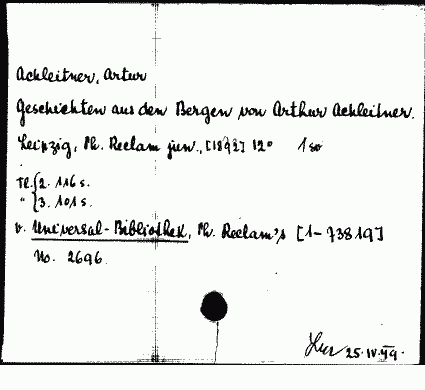 Achleitner, Artur
Geschichten aus den Bergen von Arthur Achleitner.
Leipzig, Ph. Reclam jun., [1893] 12°
Tl. 2. 116 s.
" 3. 101 s.
v. Universal-Bibliothek, Ph. Reclam's [1-73819]
No. 2696.
25.IV.